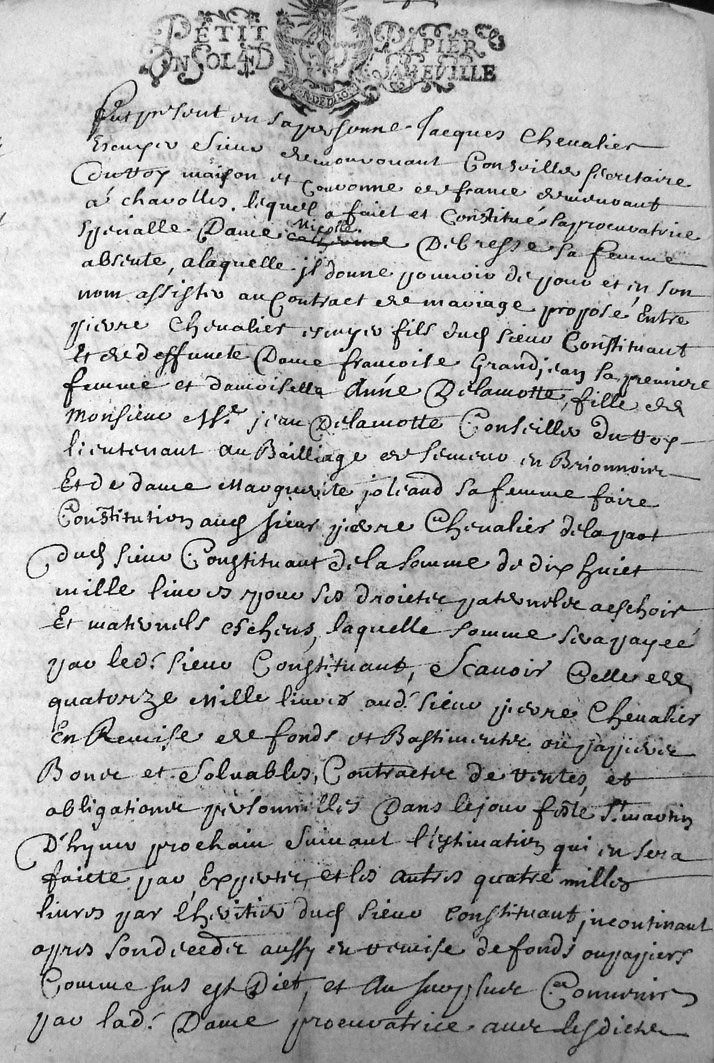 PETIT PAPIER
UN SOL 4 D
GEN DE DIJON
Fut present en sa personne Jacques Chevalier
Escuyer Sieur de Conseiller secretaire
du Roy maison et Couronne de france demeurant
a charolles. lequel a faict et Constitué sa procuratrice
Nicolle
specialle Dame Debresse sa femme
absente, a laquelle jl donne pouvoir de pour et en son
nom assister au Contract de mariage proposé Entre
pierre Chevalier escuyer fils dud sieur Constituant
Et de deffuncte Dame francoise Grandjean sa premiere
femme et damoiselle Anne Delamotte, fille de
Monsieur Mre jean Delamotte Conseiller du Roy
lieutenant au Bailliage de Semeur en Brionnois
Et de dame Marguerite joleaud sa femme faire
Constitution aud sieur pierre Chevalier de la part
dud sieur Constituant de la somme de dix huict
mille livres pour ses droicts paternels a eschoir
Et maternels escheus, laquelle somme sera payeé
par led. sieur Constituant, Scavoir Celle de
quatorze Mille livres aud. sieur pierre Chevalier
En Remise de fonds et Bastiments ou papiers
Bons et Solvables, Contracts de ventes, et
obligations personnelles Dans le jour feste St martin
D'hyver prochain suivant l'estimation qui en sera
faicte par Experts, et les autres quatre milles
livres par l'heritier dud sieur Constituant, incontinant
apres son deceds aussy en remise de fonds ou papiers
Comme sus est Dict, et Au surplus Convenir
par lad. Dame procuratrice avec lesdicts